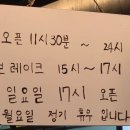 오픈 11시30분 ~ 24시
브레이크 15시~17시
일요일 17시 오픈
월요일 정기 휴무 입니다